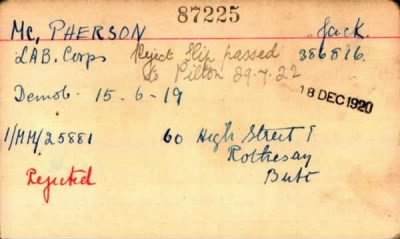 87225
Mc, PHERSON Jack.
LAB. Corps Reject Slip passed 386816.
to Pilton 29.7.22
Demob. 15-6-19 18 DEC 1920
1/MM/25881 60 High Street
Rothesay
Bute
Rejected